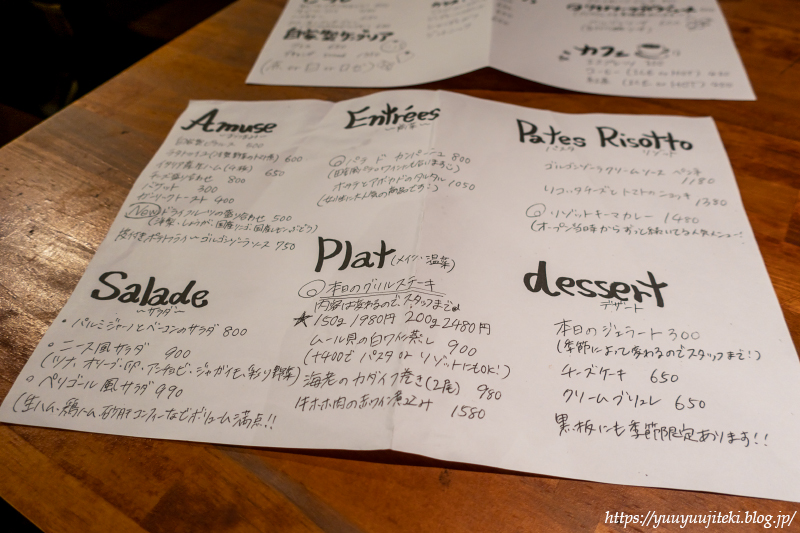 自家製サングリア
(赤 or 白 or ロゼ)
カフェ
Amuse
自家製ピクルス 500
600
イタリア産生ハム(4枚) 650
チーズ盛り合わせ 800
バゲット 300
ガーリックトースト 400
New ドライフルーツの盛り合わせ 500
皮付きポテトフライ〜ゴルゴンゾーラソース 750
Entrées
〜前菜〜
パテ ド カンパーニュ 800
ホタテとアボカドのタルタル 1050
(女性に大人気の商品です。)
Pates Risotto
パスタ リゾート
ゴルゴンゾーラクリームソース ペンネ
1180
リコッタチーズとトマトのニョッキ
1380
リゾットキーマカレー 1450
(オープン当時からずっと続いてる人気メニュー!
Salade
〜サラダ〜
・パルミジャーノとベーコンのサラダ 800
・ニース風サラダ 900
(ツナ、オリーブ、卵、アンチョビ、ジャガイモ、彩り野菜)
・ペリゴール風サラダ 990
(生ハム、鶏ハム、砂肝コンフィーなどボリューム満点!!
Plat (メイン・温菜)
本日のグリルステーキ
内容は変わるのでスタッフまで
★150g 1980円 200g 2480円
ムール貝の白ワイン蒸し 900
(+400でパスタ or リゾットにもOK!)
海老のカダイフ巻き(2尾) 980
牛ホホ肉の赤ワイン煮込み 1580
dessert
デザート
本日のジェラート 300
(季節によって変わるのでスタッフまで!)
チーズケーキ 650
クリームブリュレ 650
黒板にも季節限定あります!!
https://yuuyuujiteki.blog.jp/